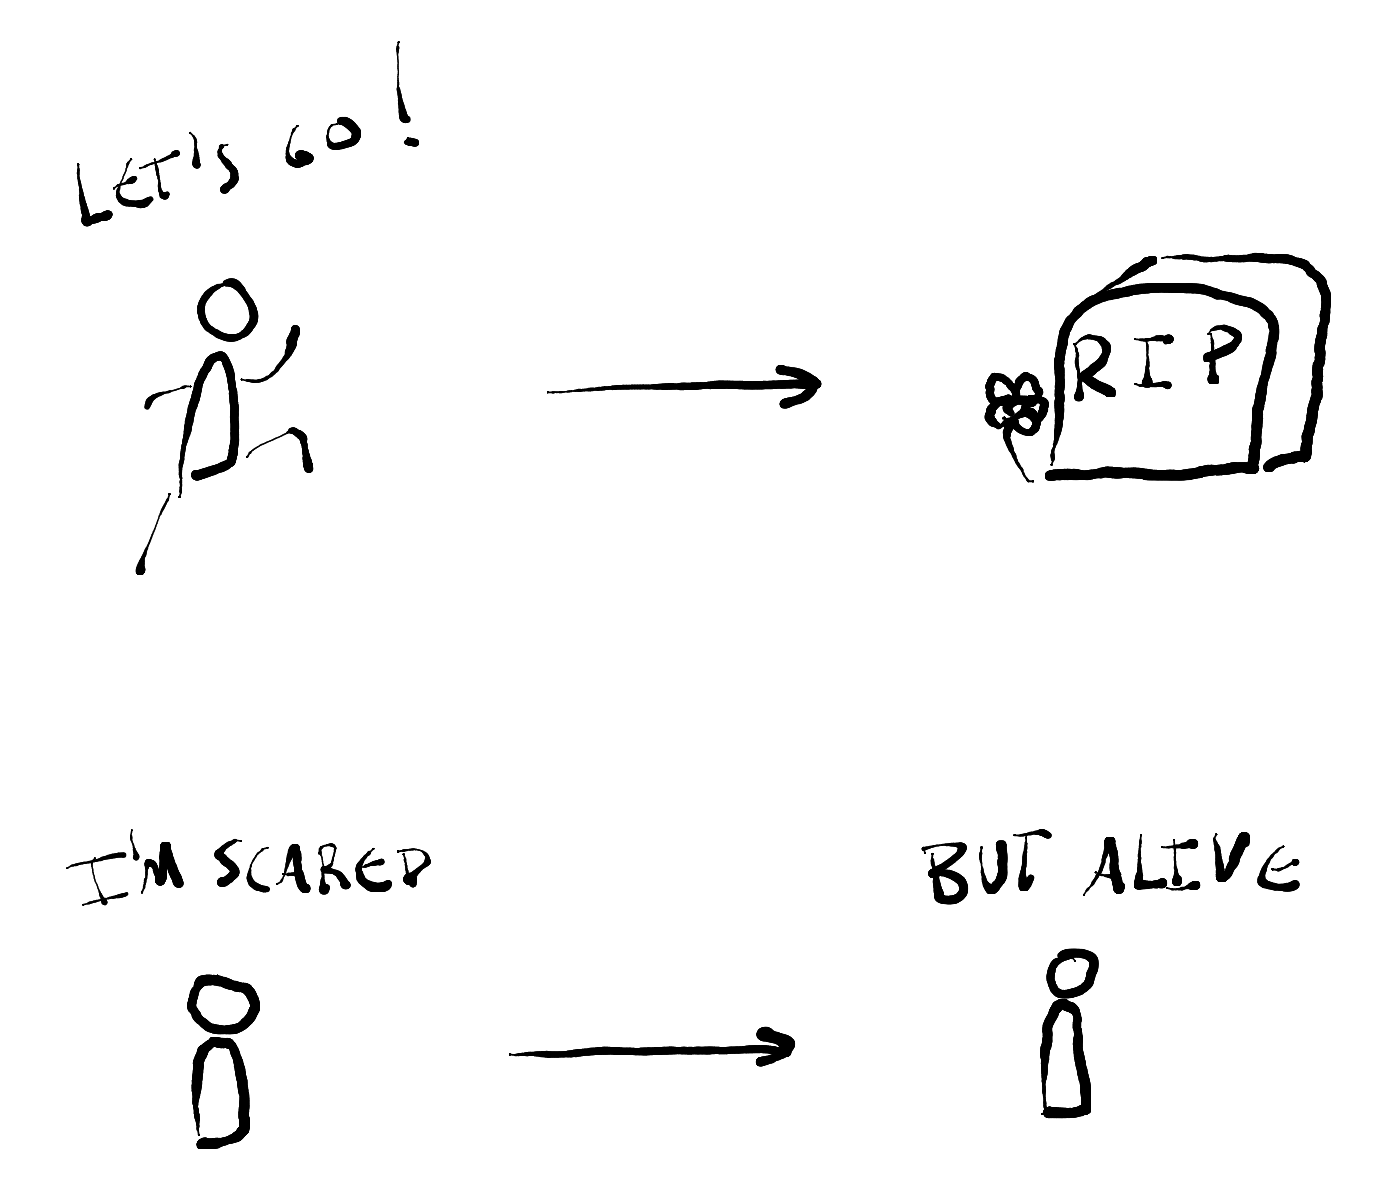 LET'S GO!
RIP
I'M SCARED
BUT ALIVE